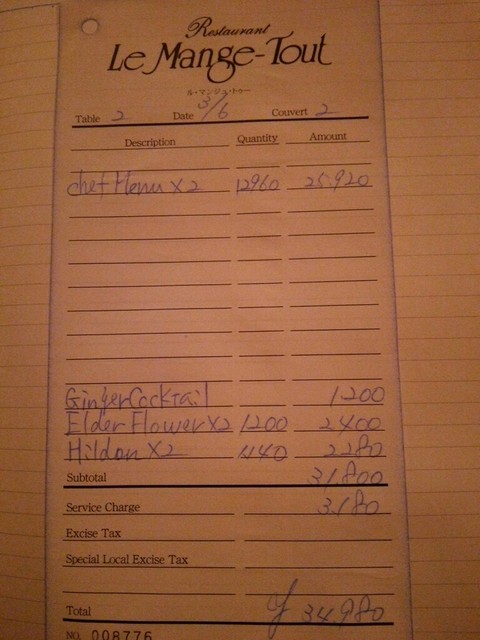 Restaurant
Le Mange-Tout
ル・マンジュ・トゥー
Table 2 Date 3/6 Couvert 2
Description Quantity Amount
chef Menu X2 12960 25.920
Ginger Cocktail 1.200
Elder Flower X2 1200 2400
Hildon X2 1140 2280
Subtotal 31.800
Service Charge 3.180
Excise Tax
Special Local Excise Tax
Total ¥ 34.980
NO. 008776